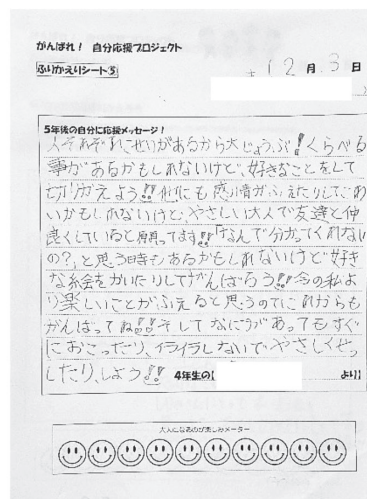 がんばれ！ 自分応援プロジェクト
ふりかえりシート⑤
12月3日
5年後の自分に応援メッセージ！
人それぞれこせいがあるから大じょうぶ！くらべる
事があるかもしれないけど、好きなことをして
切りかえよう!!他にも感情がふえたりしてこわ
いかもしれないけど、やさしい大人で友達と仲
良くしていると願ってます!!「なんで分かってくれない
の?」と思う時もあるかもしれないけど好き
な絵をかいたりしてがんばろう!!今の私よ
り楽しいことがふえると思うのでこれからも
がんばってね!!そしてなにがあってもすぐ
におこったり、イライラしないでやさしくせっ
したり、しよう!!
4年生の【 より】
大人になるのが楽しみメーター